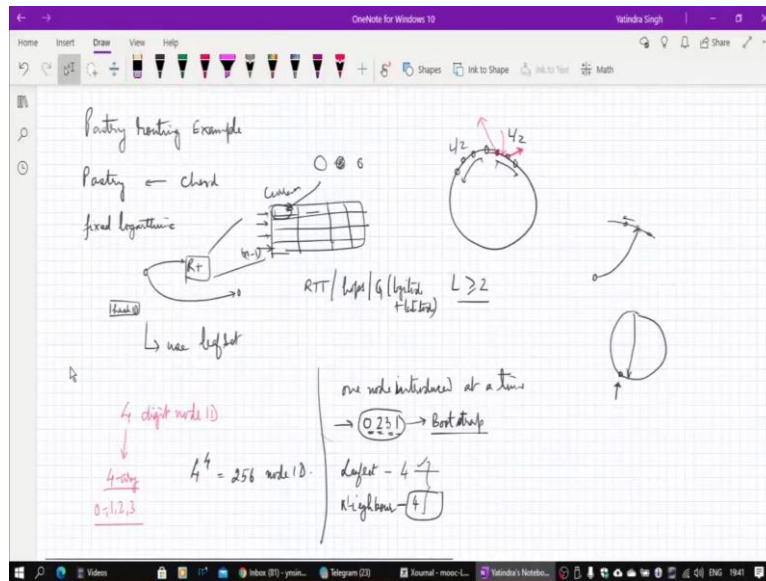 OneNote for Windows 10
Yatindra Singh
Home Insert Draw View Help
Share
Shapes Ink to Shape Ink to Text Math
Pastry Routing Example
Pastry ← Chord
fixed logarithmic
R+
(n-1)
L/2
L/2
RTT / hops / G
L ≥ 2
↳ use leafset
4 digit node ID
4-ary
0-1, 2, 3
4⁴ = 256 node ID.
one node introduced at a time
→ 0231 → Bootstrap
Leafset - 4
Neighbour - 4
Videos
Inbox (81) - ynsin...
Telegram (23)
Xournal - mooc-l...
Yatindra's Notebo...
ENG
1941